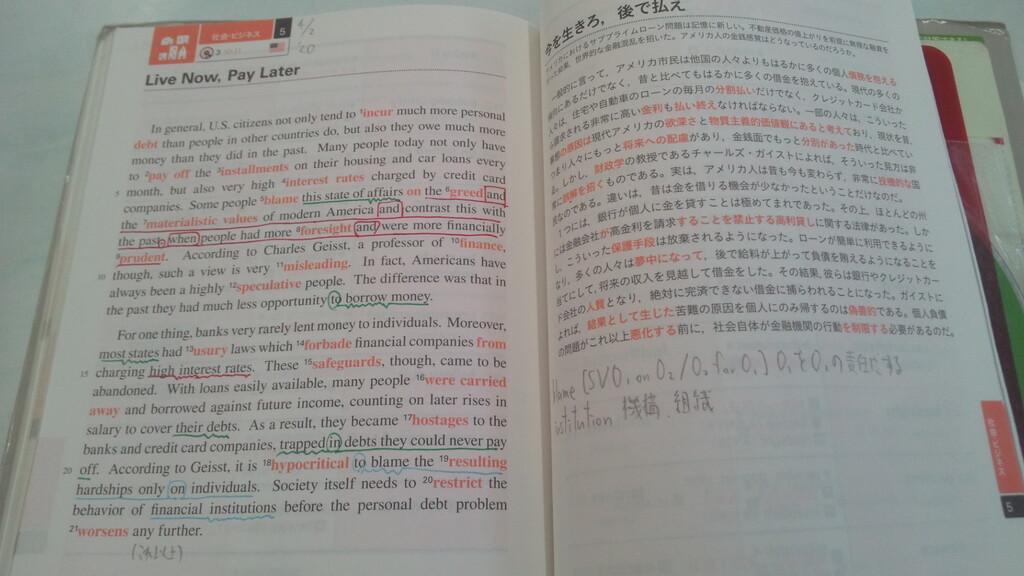 社会・ビジネス 5
3 10-11
4/2
4/20
Live Now, Pay Later
In general, U.S. citizens not only tend to ¹incur much more personal
debt than people in other countries do, but also they owe much more
money than they did in the past. Many people today not only have
to ²pay off the ³installments on their housing and car loans every
5 month, but also very high ⁴interest rates charged by credit card
companies. Some people ⁵blame this state of affairs on the ⁶greed and
the ⁷materialistic values of modern America and contrast this with
the past, when people had more ⁸foresight and were more financially
⁹prudent. According to Charles Geisst, a professor of ¹⁰finance,
10 though, such a view is very ¹¹misleading. In fact, Americans have
always been a highly ¹²speculative people. The difference was that in
the past they had much less opportunity to borrow money.
For one thing, banks very rarely lent money to individuals. Moreover,
most states had ¹³usury laws which ¹⁴forbade financial companies from
15 charging high interest rates. These ¹⁵safeguards, though, came to be
abandoned. With loans easily available, many people ¹⁶were carried
away and borrowed against future income, counting on later rises in
salary to cover their debts. As a result, they became ¹⁷hostages to the
banks and credit card companies, trapped in debts they could never pay
20 off. According to Geisst, it is ¹⁸hypocritical to blame the ¹⁹resulting
hardships only on individuals. Society itself needs to ²⁰restrict the
behavior of financial institutions before the personal debt problem
²¹worsens any further.
(これ以上)
今を生きろ，後で払え
アメリカにおけるサブプライムローン問題は記憶に新しい。不動産価格の値上がりを前提に無理な融資を
結果，世界的な金融混乱を招いた。アメリカ人の金銭感覚はどうなっているのだろうか。
一般的に言って，アメリカ市民は他国の人々よりもはるかに多くの個人債務を抱える
傾向にあるだけでなく，昔と比べてもはるかに多くの借金を抱えている。現代の多くの
人々は，住宅や自動車のローンの毎月の分割払いだけでなく，クレジットカード会社か
ら請求される非常に高い金利も払い終えなければならない。一部の人々は，こういった
事態の原因は現代アメリカの欲深さと物質主義的価値観にあると考えており，現状を昔，
つまり人々にもっと将来への配慮があり，金銭面でもっと分別があった時代と比べてい
る。しかし，財政学の教授であるチャールズ・ガイストによれば，そういった見方は非
常に誤解を招くものである。実は，アメリカ人は昔も今も変わらず，非常に投機的な国
民なのである。違いは，昔は金を借りる機会が少なかったということだけなのだ。
1つには，銀行が個人に金を貸すことは極めてまれであった。その上，ほとんどの州
には金融会社が高金利を請求することを禁止する高利貸しに関する法律があった。しか
し，こういった保護手段は放棄されるようになった。ローンが簡単に利用できるように
なり，多くの人々は夢中になって，後で給料が上がって負債を賄えるようになることを
当てにして，将来の収入を見越して借金をした。その結果，彼らは銀行やクレジットカー
ド会社の人質となり，絶対に完済できない借金に捕らわれることになった。ガイストに
よれば，結果として生じた苦難の原因を個人にのみ帰するのは偽善的である。個人負債
の問題がこれ以上悪化する前に，社会自体が金融機関の行動を制限する必要があるのだ。
blame [SV O₁ on O₂ / O₂ for O₁] O₁をO₂の責任にする
institution 機構，組織
社会・ビジネス
5